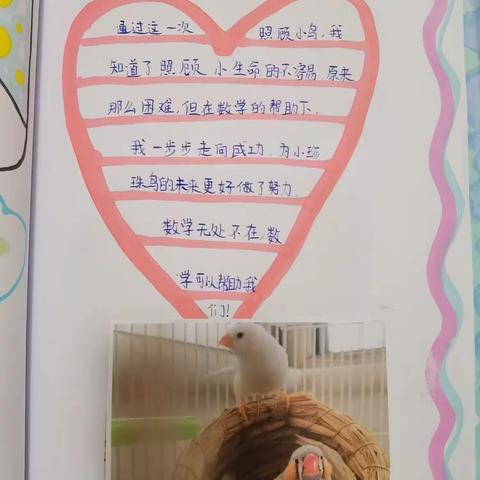 通过这一次 照顾小鸟,我
知道了照顾小生命的不容易,原来
那么困难,但在数学的帮助下,
我一步步走向成功,为小珍
珠鸟的未来更好做了努力。
数学无处不在,数
学可以帮助我
们!